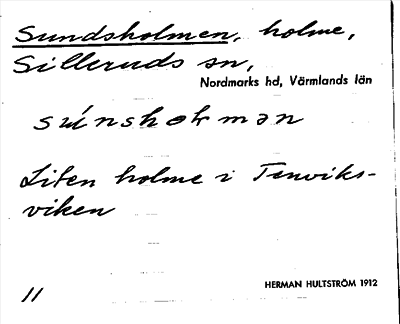 Sundsholmen, holme,
Silleruds sn,
Nordmarks hd, Värmlands län
súnshoḷmǝn
Liten holme i Tenviks-
viken
11
HERMAN HULTSTRÖM 1912